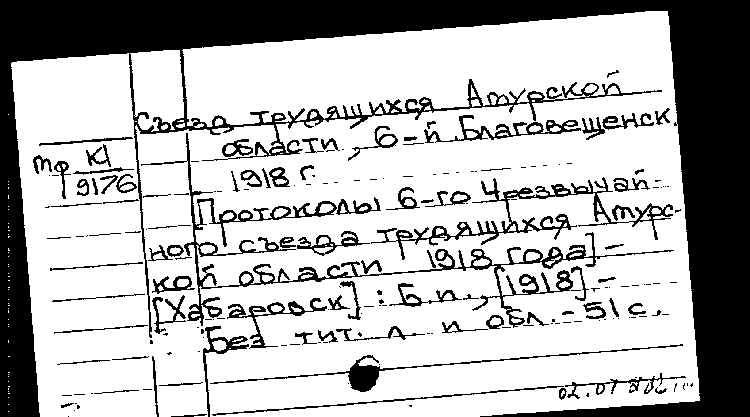 Съезд трудящихся Амурской
области, 6-й. Благовещенск.
1918 г.
К1
9176
[Протоколы 6-го Чрезвычай-
ного съезда трудящихся Амурс-
кой области 1918 года] –
[Хабаровск] : Б.и., [1918] –
Без тит. л. и обл. – 51 с.
02.07